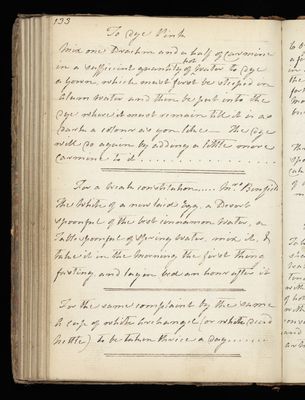 133
To Dye Pink
Mix one Drachm and a half of Carmine
in a sufficient quantity of hot Water to dye
a gown, which must first be steeped in
Alum Water and then be put into the
dye where it must remain till it is as
dark a colour as you like — The dye
will do again by adding a little more
Carmine to it
For a weak constitution ..... Mrs
The White of a new laid Egg, a Desert
spoonful of the best cinnamon Water, a
Table spoonful of Spring Water, mix it, &
take it in the Morning the first thing
fasting and lay in bed an hour after it
For the same complaint by the same
A cup of white Archangel (or white dead
Nettle) to be taken thrice a day